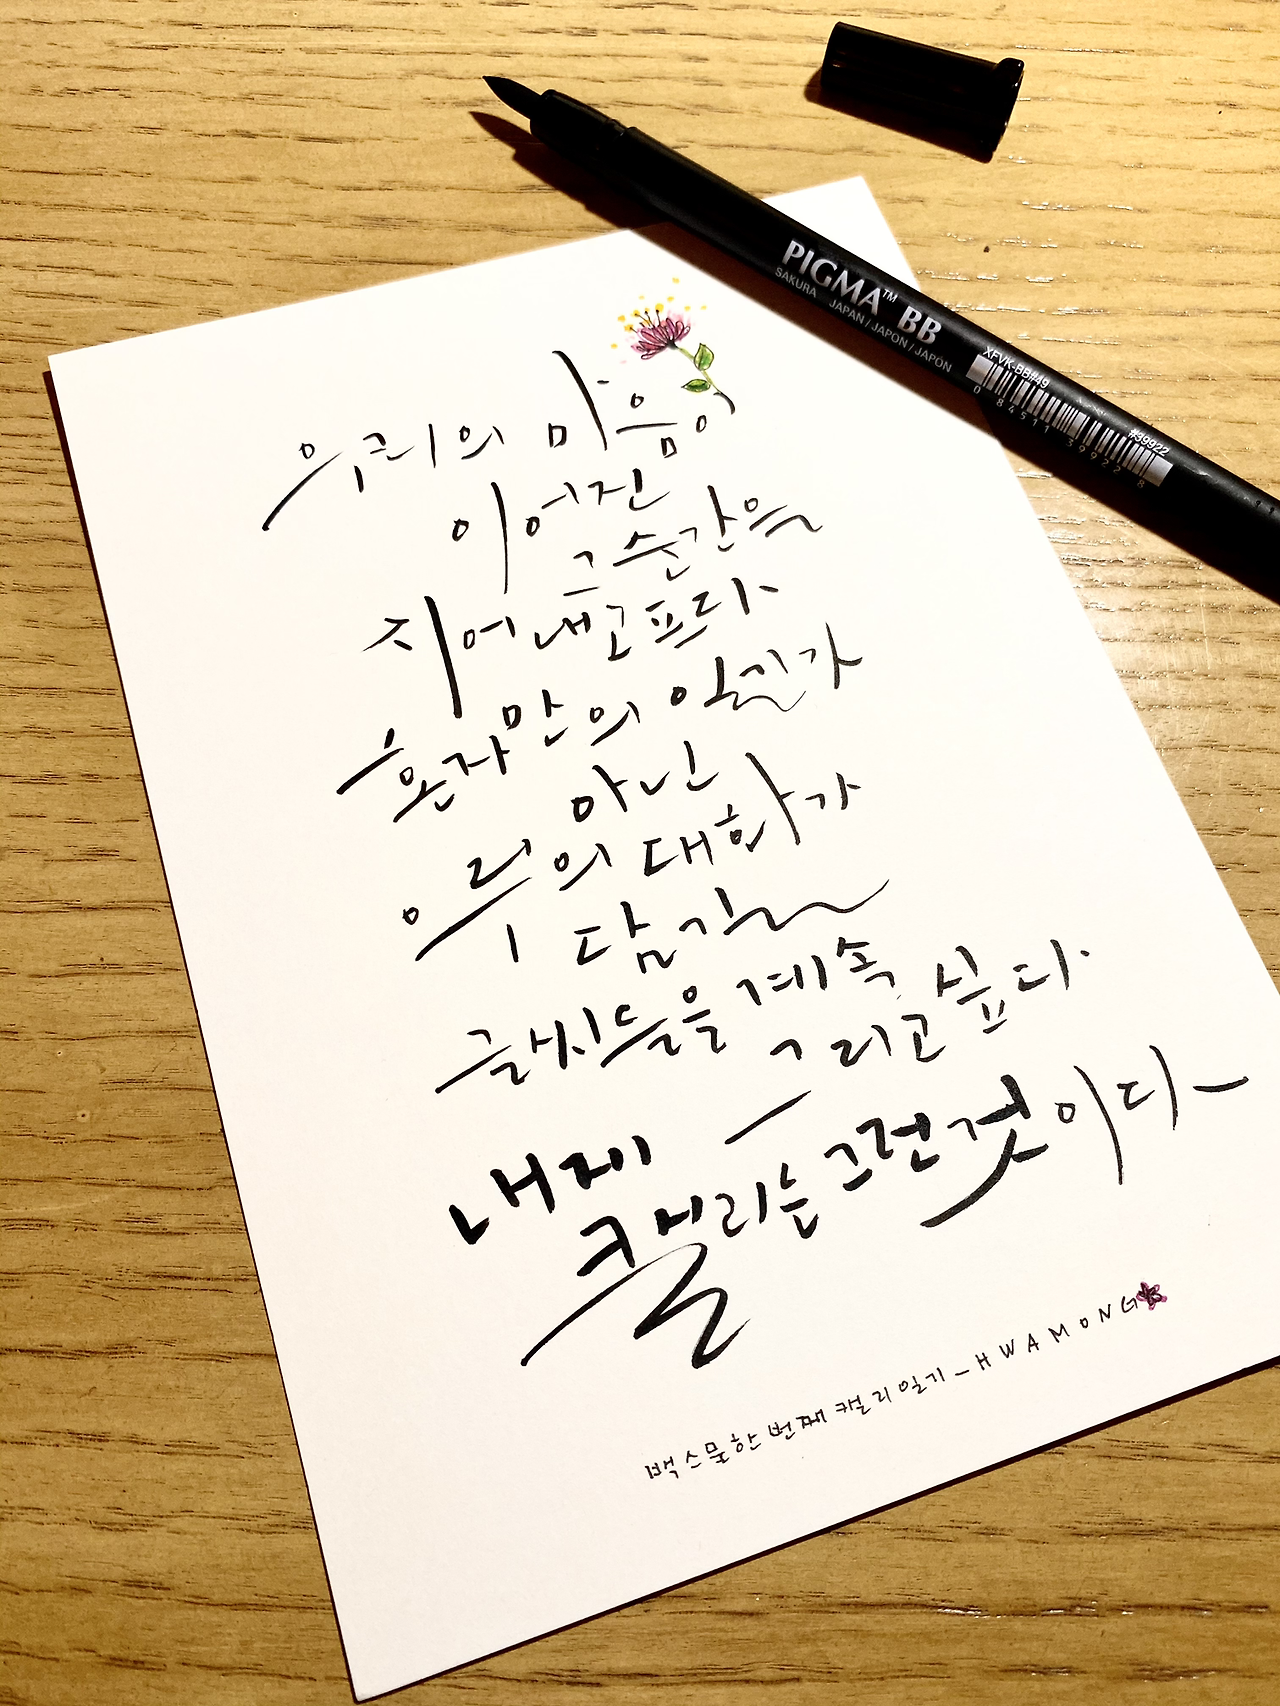 PIGMA™ BB
SAKURA JAPAN / JAPON / JAPÓN
XFVK-BB#49
#39922
0 84511 39922 8
우리의 마음이
이어진
그 순간을
지어내고프다.
혼자만의 일기가
아닌
우리의 대화가
담긴
글씨들을 계속
그리고 싶다.
내게
캘리는 그런 것이다
백스물한번째 캘리일기 - HWAMONG